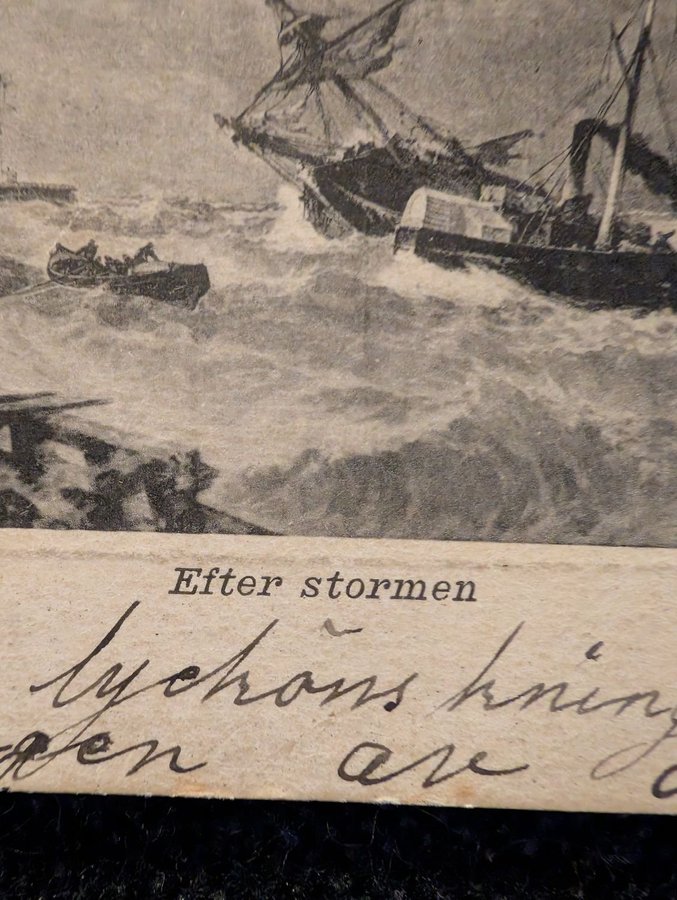 Efter stormen
lyckönskning
gen av